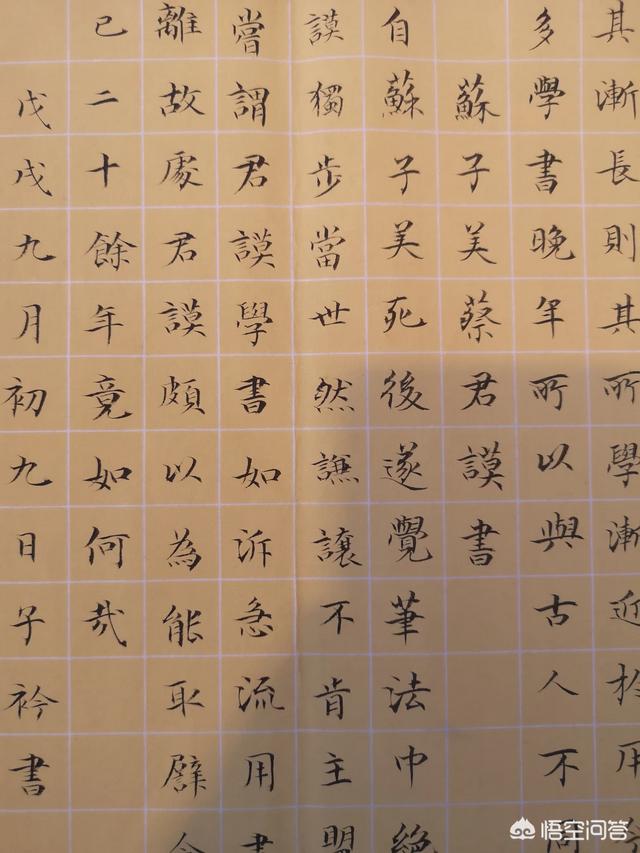 其漸長則其所學漸近於用
多學書晚年所以與古人不同
蘇子美蔡君謨書
自蘇子美死後遂覺筆法中絕
謨獨步當世然謙讓不肯主盟
嘗謂君謨學書如訴急流用
離故處君謨頗以為能取譬今
已二十餘年竟如何哉
戊戌九月初九日子衿書
悟空问答